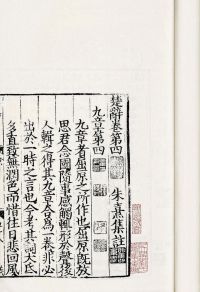 楚辭卷第四
朱熹集註
九章第四
九章者屈原之所作也屈原既放
思君念國隨事感觸輒形於聲後
人輯之得其九章合爲一卷非必
出於一時之言也今考其詞大氐
多直致無潤色而惜往日悲回風